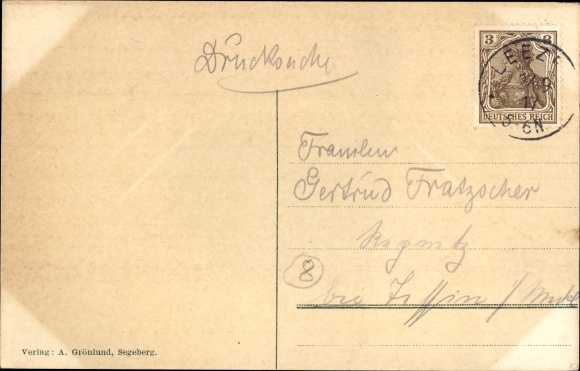 Drucksache
3 3
DEUTSCHES REICH
LEEZ
17
5-6N
Fräulein
Gertrud Fratzscher
8
bei Tessin / Meckl
Verlag: A. Grönlund, Segeberg.